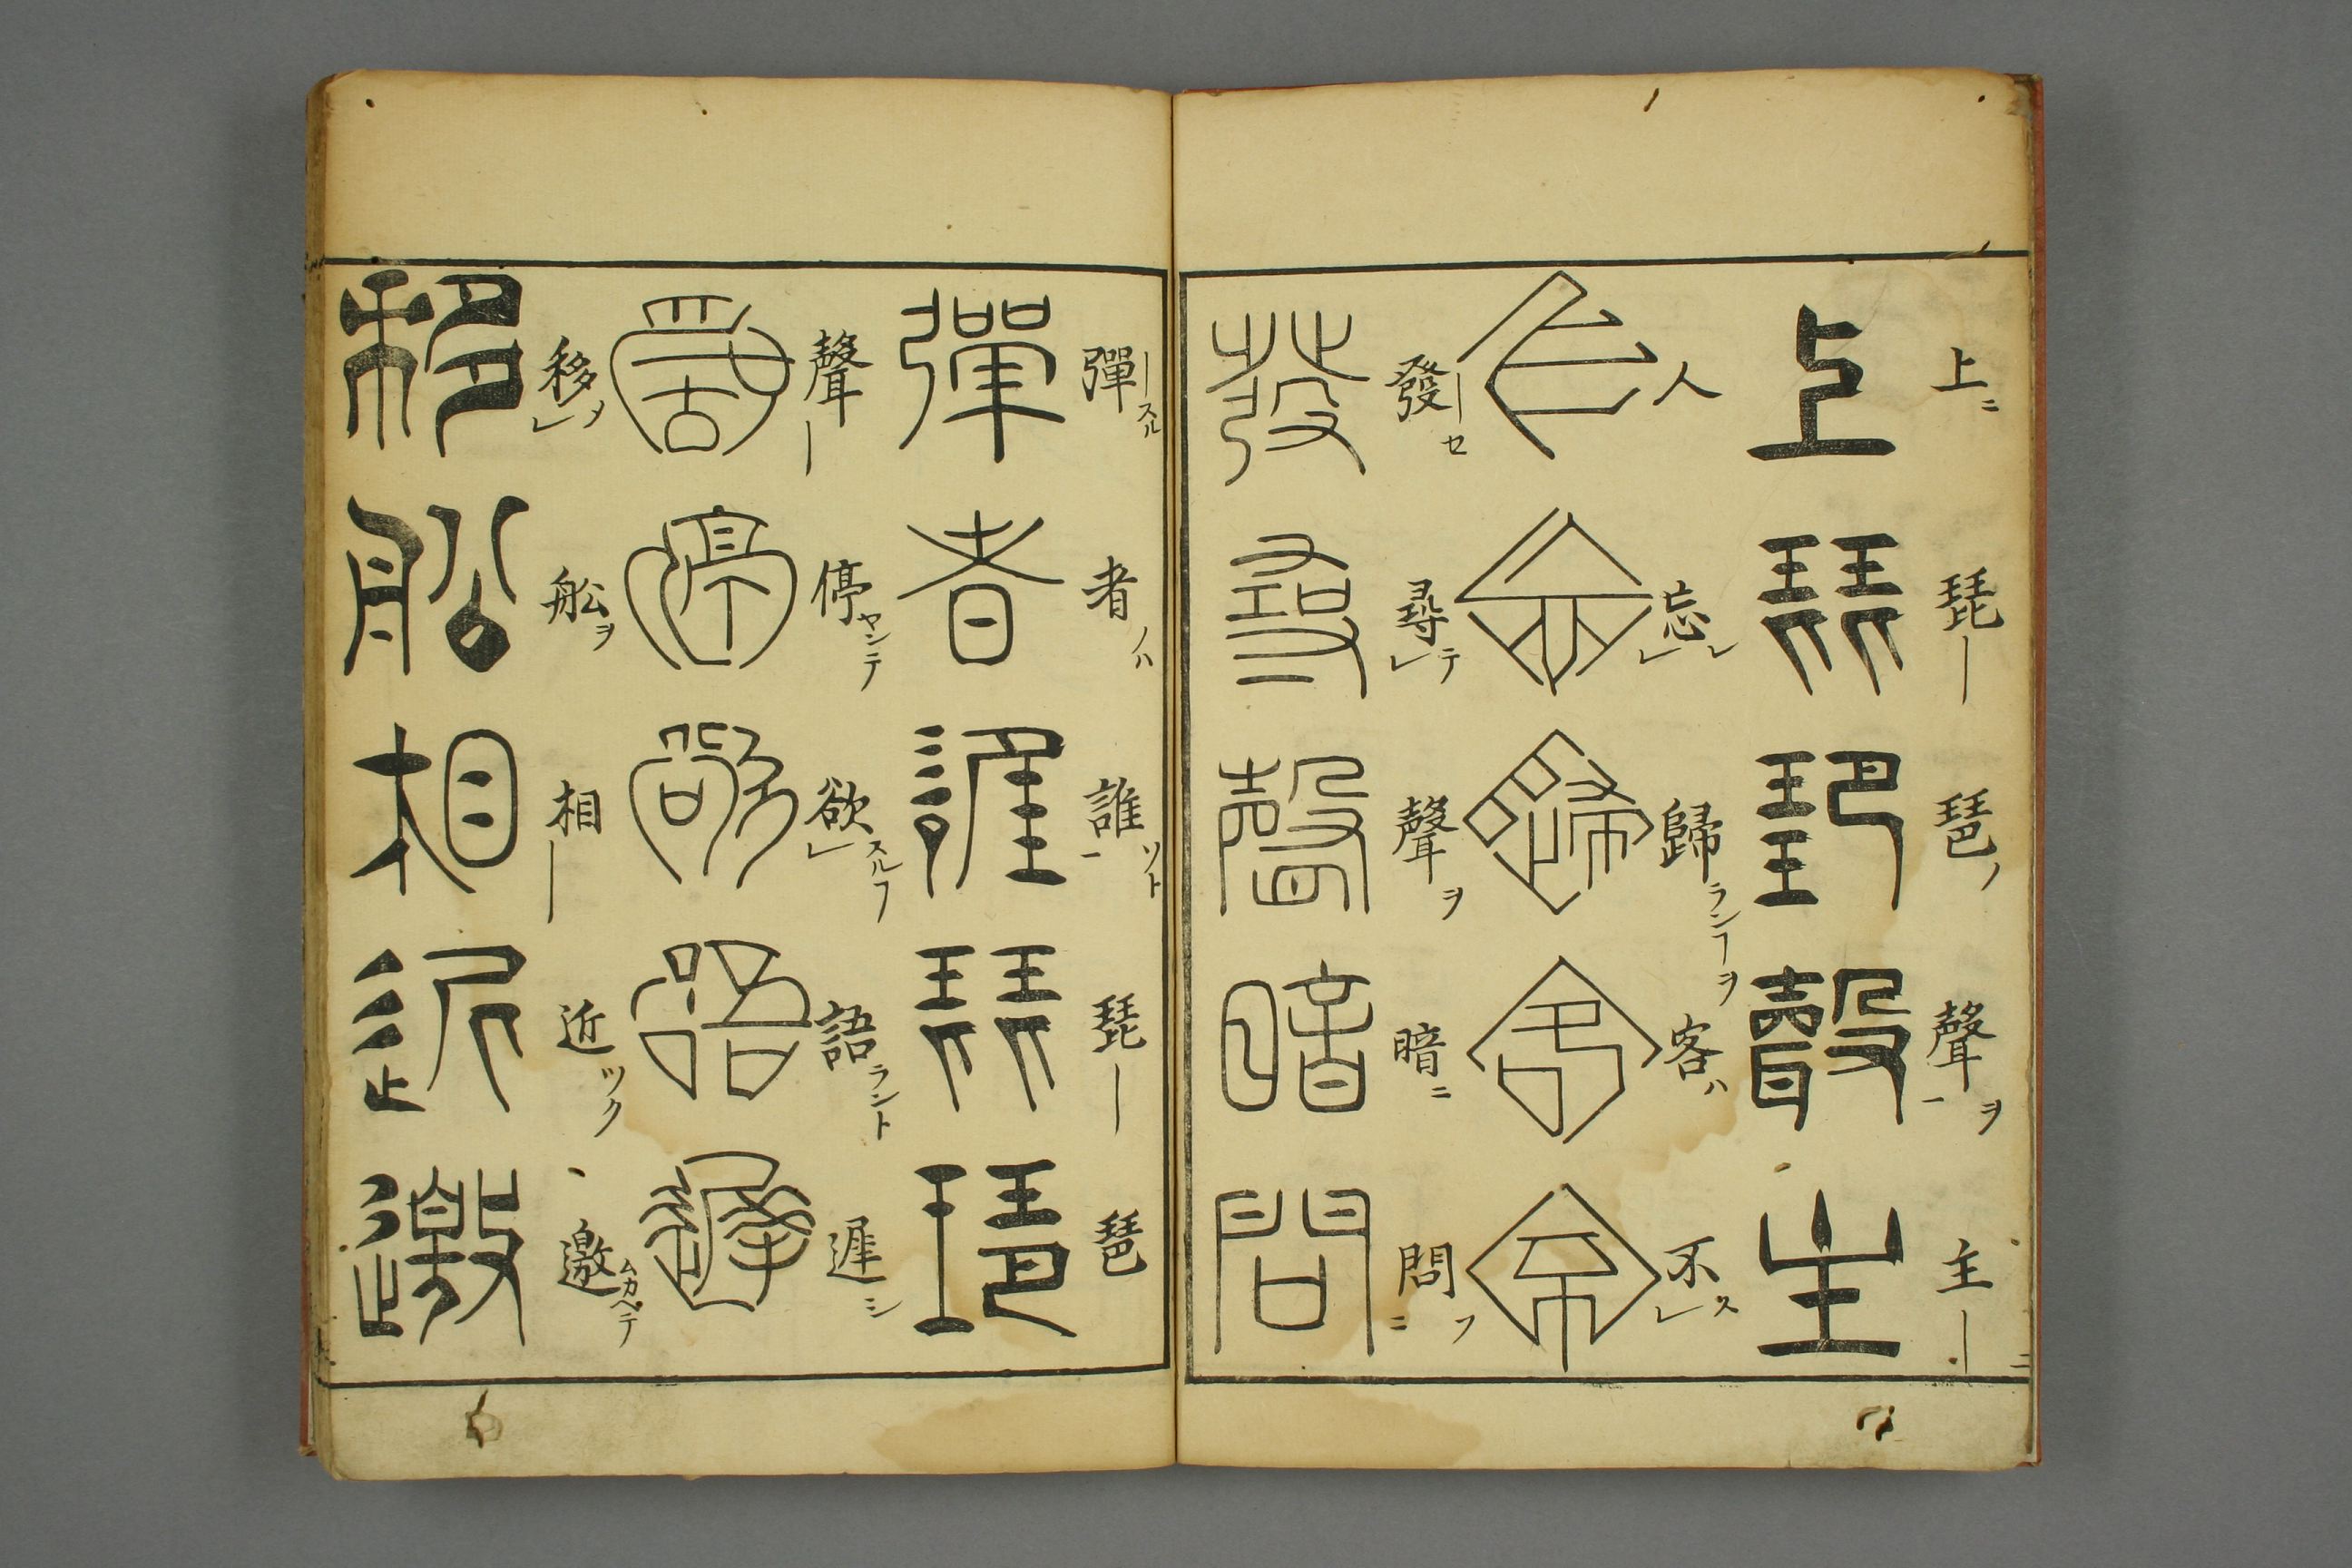 上ニ琵ー琶ノ聲ヲ一主ー
上琵琶聲主
人忘レ㆑歸ランヿヲ客ハ不ス㆑
人忘歸客不
發ーセ尋テ㆑聲ヲ暗ニ問フ二
發尋聲暗問
彈ースル者ノハ誰ソト一琵ー琶
彈者誰琵琶
聲ー停ヤンテ欲スルヿ㆑語ラント遲シ
聲停欲語遲
移メ㆑舩ヲ相ー近ツク邀ムカヘテ
移舩相近邀